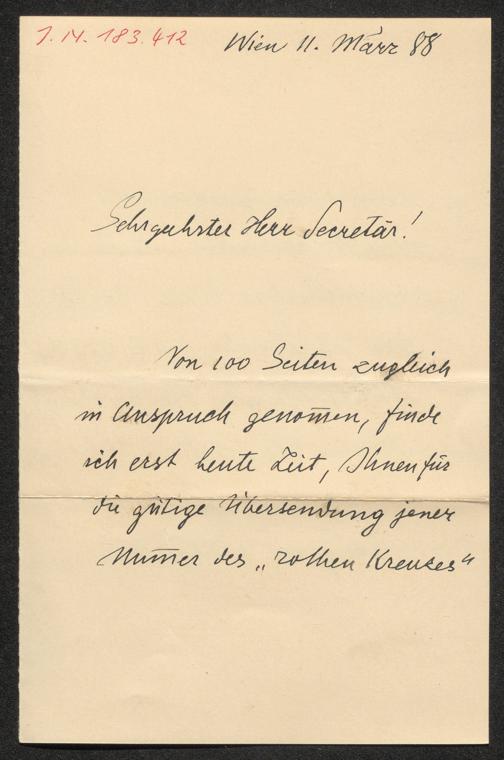 J. N. 183.412
Wien 11. März 88
Sehrgeehrter Herr Secretär!
Von 100 Seiten zugleich
in Anspruch genom̅en, finde
ich erst heute Zeit, Ihnen für
die gütige Übersendung jener
Num̅er des „rothen Kreuzes“